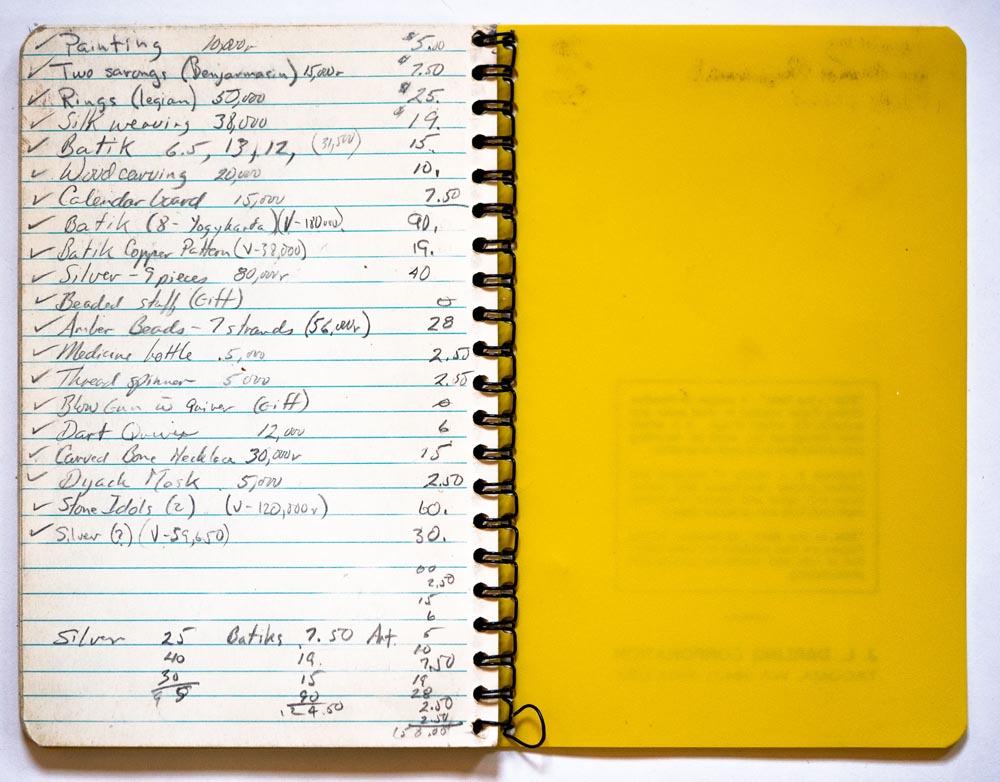 ✓ Painting 10,000r $5.00
✓ Two sarongs (Benjarmasin) 15,000r $7.50
✓ Rings (legian) 50,000 $25.
✓ Silk weaving 38,000 $19.
✓ Batik 6.5, 13, 12, (31,500) 15.
✓ Wood carving 20,000 10.
✓ Calendar board 15,000 7.50
✓ Batik (8- Yogykarta)(V-180,000) 90.
✓ Batik Copper Pattern (V-38,000) 19.
✓ Silver - 9 pieces 80,000r 40
✓ Beaded staff (Gift) 0
✓ Amber Beads - 7 strands (56,000r) 28
✓ Medicine bottle 5,000 2.50
✓ Thread spinner 5000 2.50
✓ Blow Gun w quiver (Gift) 0
✓ Dart Quiver 12,000 6
✓ Carved Bone Necklace 30,000r 15
✓ Dyack Mask 5,000 2.50
✓ Stone Idols (2) (V-120,000r) 60.
✓ Silver (?) (V-59,650) 30.
60
2.50
15
6
Silver 25 Batiks 7.50 Art. 5
40 19. 10
30 15 7.50
95 90 19
124.50 28
2.50
2.50
J. L. DARLING CORPORATION